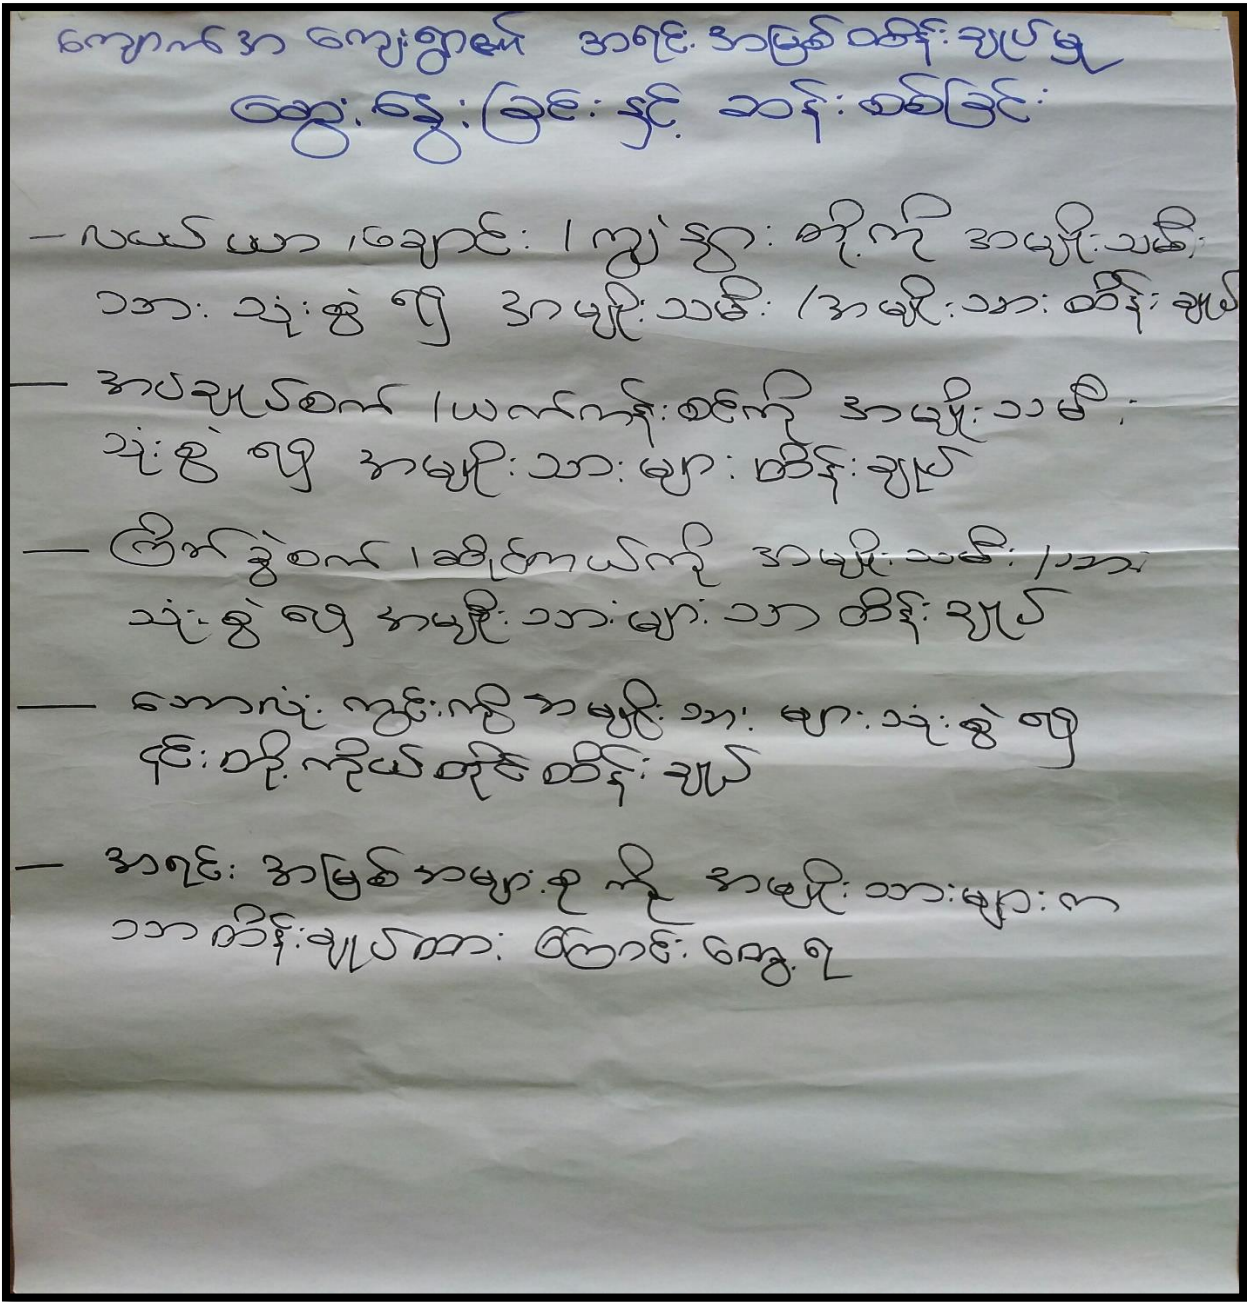 ကျောက်အ ကျေးရွာ၏ အရင်းအမြစ်ထိန်းချုပ်မှု
ဆွေးနွေးခြင်းနှင့် ဆန်းစစ်ခြင်း
- လယ်ယာ /ချောင်း /ကျွဲနွား တို့ကို အမျိုးသမီး
သား သုံးစွဲ ၍ အမျိုးသမီး /အမျိုးသား ထိန်းချုပ်
- အပ်ချုပ်စက် /ယက်ကန်းစင်ကို အမျိုးသမီး
သုံးစွဲ ၍ အမျိုးသားများ ထိန်းချုပ်
- ကြိတ်ခွဲစက် /ဆိုင်ကယ်ကို အမျိုးသမီး /သား
သုံးစွဲ ၍ အမျိုးသားများသာ ထိန်းချုပ်
- ဘောလုံးကွင်းကို အမျိုးသား များသုံးစွဲ ၍
၎င်းတို့ကိုယ်တိုင်ထိန်းချုပ်
- အရင်းအမြစ်အများစု ကို အမျိုးသားများက
သာထိန်းချုပ်ထား ကြောင်းတွေ့ရ